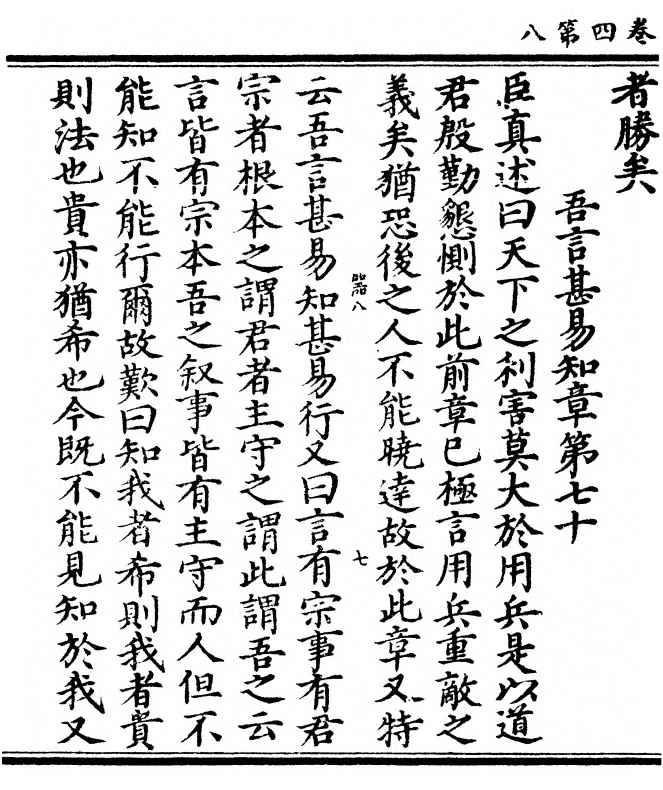 卷四第八
者勝矣
吾言甚易知章第七十
臣真述曰天下之利害莫大於用兵是以道
君殷勤懇惻於此前章已極言用兵重敵之
義矣猶恐後之人不能曉達故於此章又特
器八
七
云吾言甚易知甚易行又曰言有宗事有君
宗者根本之謂君者主守之謂此謂吾之云
言皆有宗本吾之叙事皆有主守而人但不
能知不能行爾故歎曰知我者希則我者貴
則法也貴亦猶希也今既不能見知於我又